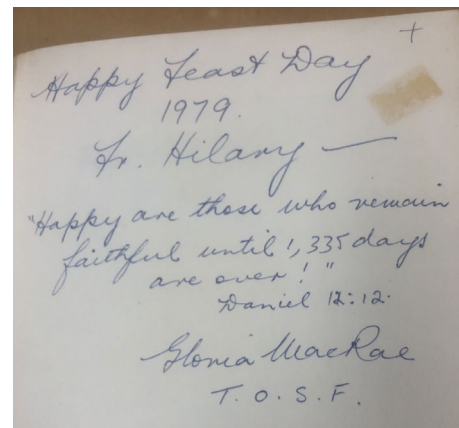 +
Happy Feast Day
1979.
Fr. Hilary —
"Happy are those who remain
faithful until 1,335 days
are over!"
Daniel 12:12.
Gloria MacRae
T. O. S. F.